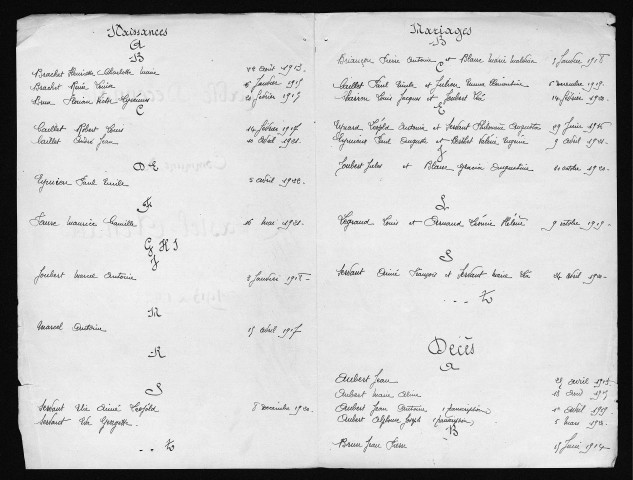 Naissances
A
B
Brachet Henriette Charlotte Marie 22 août 1913
Brachet Marie Louise Janvier 1915
Brun février 1915
C
Caillet Robert Louis 14 février 1917
Caillet André Jean 10 avril 1921
D E
Eymeoud Paul Emile 5 avril 1922
F
Faure Maurice Camille 16 mai 1921
G H I
J
Joubert Marcel Antoine 2 Janvier 1918
M
Marcel Antoine 15 avril 1917
R
S
Servant Aimé Léopold 8 décembre 1920
Servant Georgette
. . . Z
Mariages
B
Briançon Pierre Antoine et Blanc Marie 1 Janvier 1918
C
Caillet Paul Emile et Julien Emma Clémentine 6 novembre 1919
Louis Jacques et Joubert 14 février 1920
E
Léopold Antonin et Servant Philomène Augustine 19 Juin 1915
Paul Auguste et Berthet Valérie Eugénie 9 avril 1921
J
Joubert Jules et Blanc Augustine 21 octobre 1920
L
Legrand Louis et Armand Léonie Hélène 9 octobre 1919
S
Servant Aimé François et Servant Marie 24 avril 1920
. . . Z
Décès
A
Aubert Jean 28 avril 1913
Aubert Marie avril 1915
Aubert Jean Antoine (transcription) avril 1919
Aubert Alphonse Joseph (transcription) 5 mars 1920
B
Brun Jean Pierre 15 Juin 1914